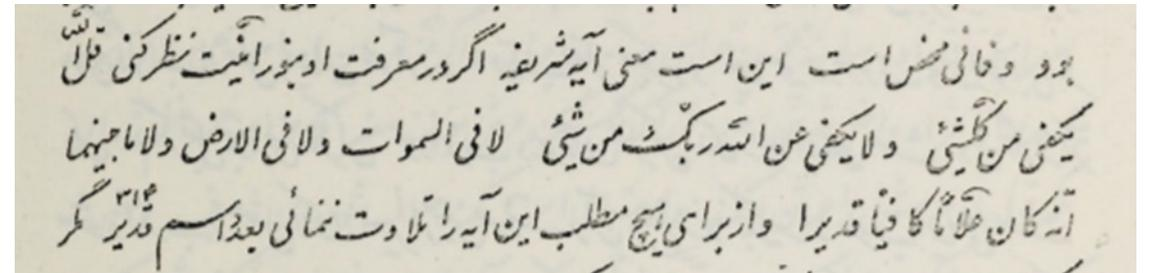 بود و فانی محض است این است معنی آیه شریفه اگر در معرفت او بنور انیت نظر کنی قل الله
یکفی من کلشیئ و لا یکفی عن الله ربک من شیئ لا فی السموات و لا فی الارض و لا ما بینهما
انه کان علاما کافیا قدیرا و از برای هیچ مطلب این آیه را تلاوت ننمائی بعدد اسم قدیر ۳۱۴ مگر